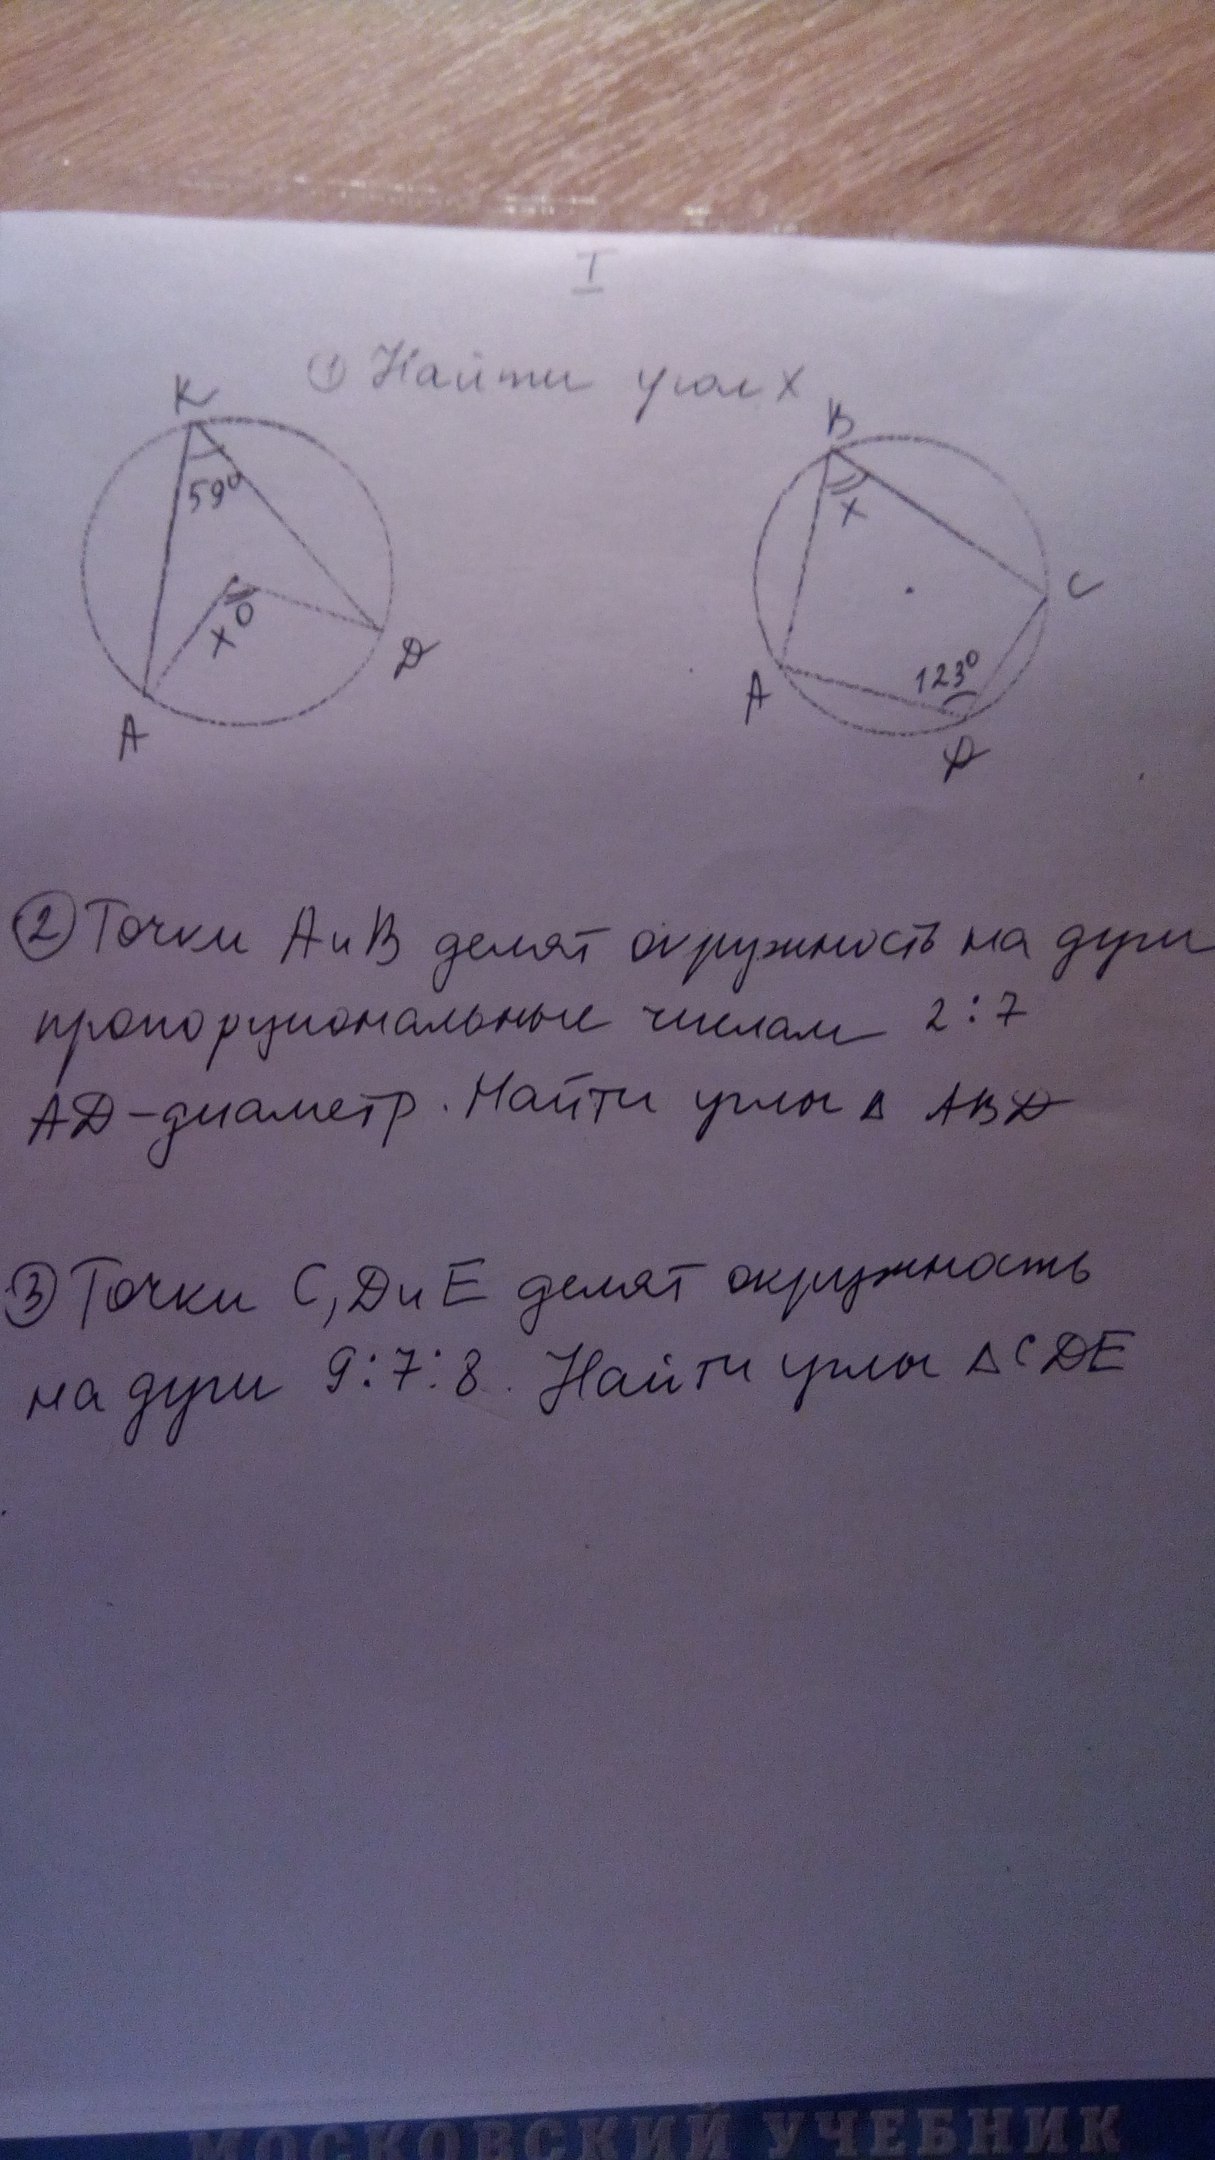 I
① Найти угол х
К
59°
х
О
А
D
В
х
С
123°
А
D
② Точки А и В делят окружность на дуги
пропорциональные числам 2:7
AD-диаметр. Найти углы ∆ ABD
③ Точки C, D и E делят окружность
на дуги 9:7:8. Найти углы ∆ CDE
МОСКОВСКИЙ УЧЕБНИК